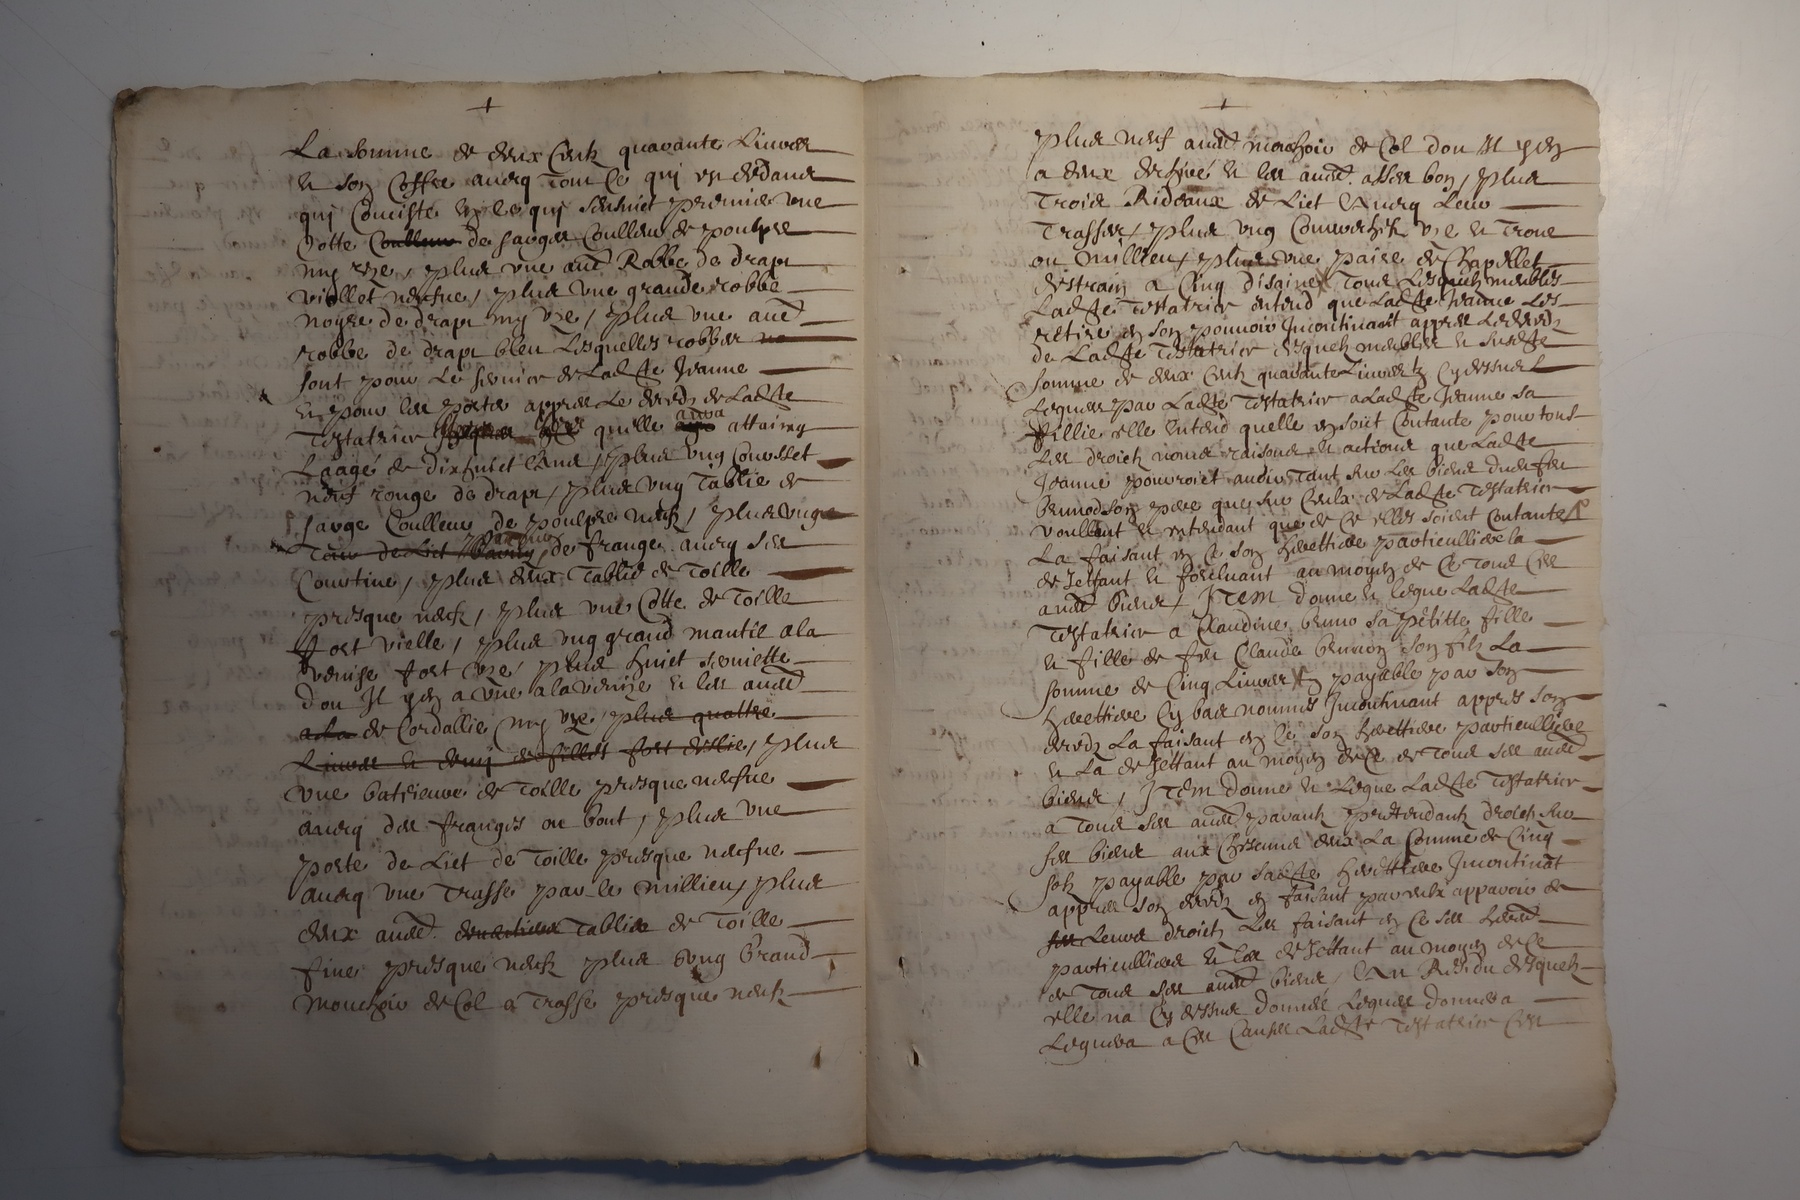 La somme de deux Centz quarante Livres
et son Coffre avecq tout Ce qui est dedans
qui Conciste en ce qui sensuict premier une
Cotte Coulleur de sarges Coulleur de poulpre
my uze, plus une autre Robbe de drapt
viollet neufve, plus une grande robbe
noyre de drapt my uze, plus une autre
robbe de drapt bleu Lesquelles robbes
sont pour Le service de Ladte Jeanne
et pour les porter appres Le decedz de Ladte
Testatrix quelle aura attaint
Laage de dixhuict Ans, plus ung Corsset
neuf rouge de drapt, plus ung Tablie de
sarge Coulleur de poulpre neufz, plus ung
Tour de Lict de frange avecq ses
Courtines, plus deux Tablie de Toille
presque neufz, plus une Cotte de Toille
fort vielle, plus ung grand mantil a la
venise fort uze, plus huict serviette
don Il yen a une a la venize et les autres
a la de Cordallie my uze, plus quattre
Livres et demy de fillet fort deslie, plus
une batrieure de Toille presque neufve
avecq des franges ou bout, plus une
porte de Lict de Toille presque neufve
avecq une Trasse par le millieu, plus
deux autres Tablie de Toille
fine presque neufz plus ung Grand
mouchoir de Col a Trasse presque neufz
plus neuf autres mochoir de Col don Il yen
a deux et les autres asses bon, plus
Trois Rideaux de Lict avecq Leur
Trasses, plus ung Couverchitz uze et Troue
ou millieu, plus une paire de Chapellet
destrain a Cinq disaine, Tous Lesquelz meubles
Ladte Testatrix entend que Ladte Jeanne Les
retire en son pouvoir Incontinant appres Le decedz
de Ladte Testatrix desquelz meubles et susdte
somme de deux Centz quarante Livres tz Cy dessus
Legues par Ladte Testatrix a Ladte Jeanne sa
fillie elle entend quelle en soit Contante pour tous
Les droictz noms raisons et actions que Ladte
Jeanne pourroict avoir Tant sur Les biens dud feu
son pere que sur Ceulx de Ladte Testatrix
voullant et entendant que de Ce elles soient Contante
La faisant en Ce son herettiere particulliere la
de Jettant et forcluant au moyen de Ce Tous Ces
autres biens, Item donne et legue Ladte
Testatrix a Claudine sa petitte fille
et fille de feu Claude son filz La
somme de Cinq Livres tz payable par son
herettiere Cy bas nommes Incontinant appres son
decedz La faisant en Ce son herettiere particulliere
et La de Jettant au moyen de Ce de Tous ses autres
biens, Item donne et Legue Ladte Testatrix
a Tous ses autres parantz prettendantz droictz sur
ses biens aux Chescuns deux La somme de Cinq
solz payable par sadte herittiere Incontinat
appres son decedz en faisant par eulx apparoir de
Leurs droictz Les faisant en Ce ses heret
particulliers et les de Jettant au moyen de Ce
de Tous ses autres biens, Au Residu desquelz
elle na Cy dessus donnés Legues donnera
Leguera a Ces Causes Ladte Testatrix Ces